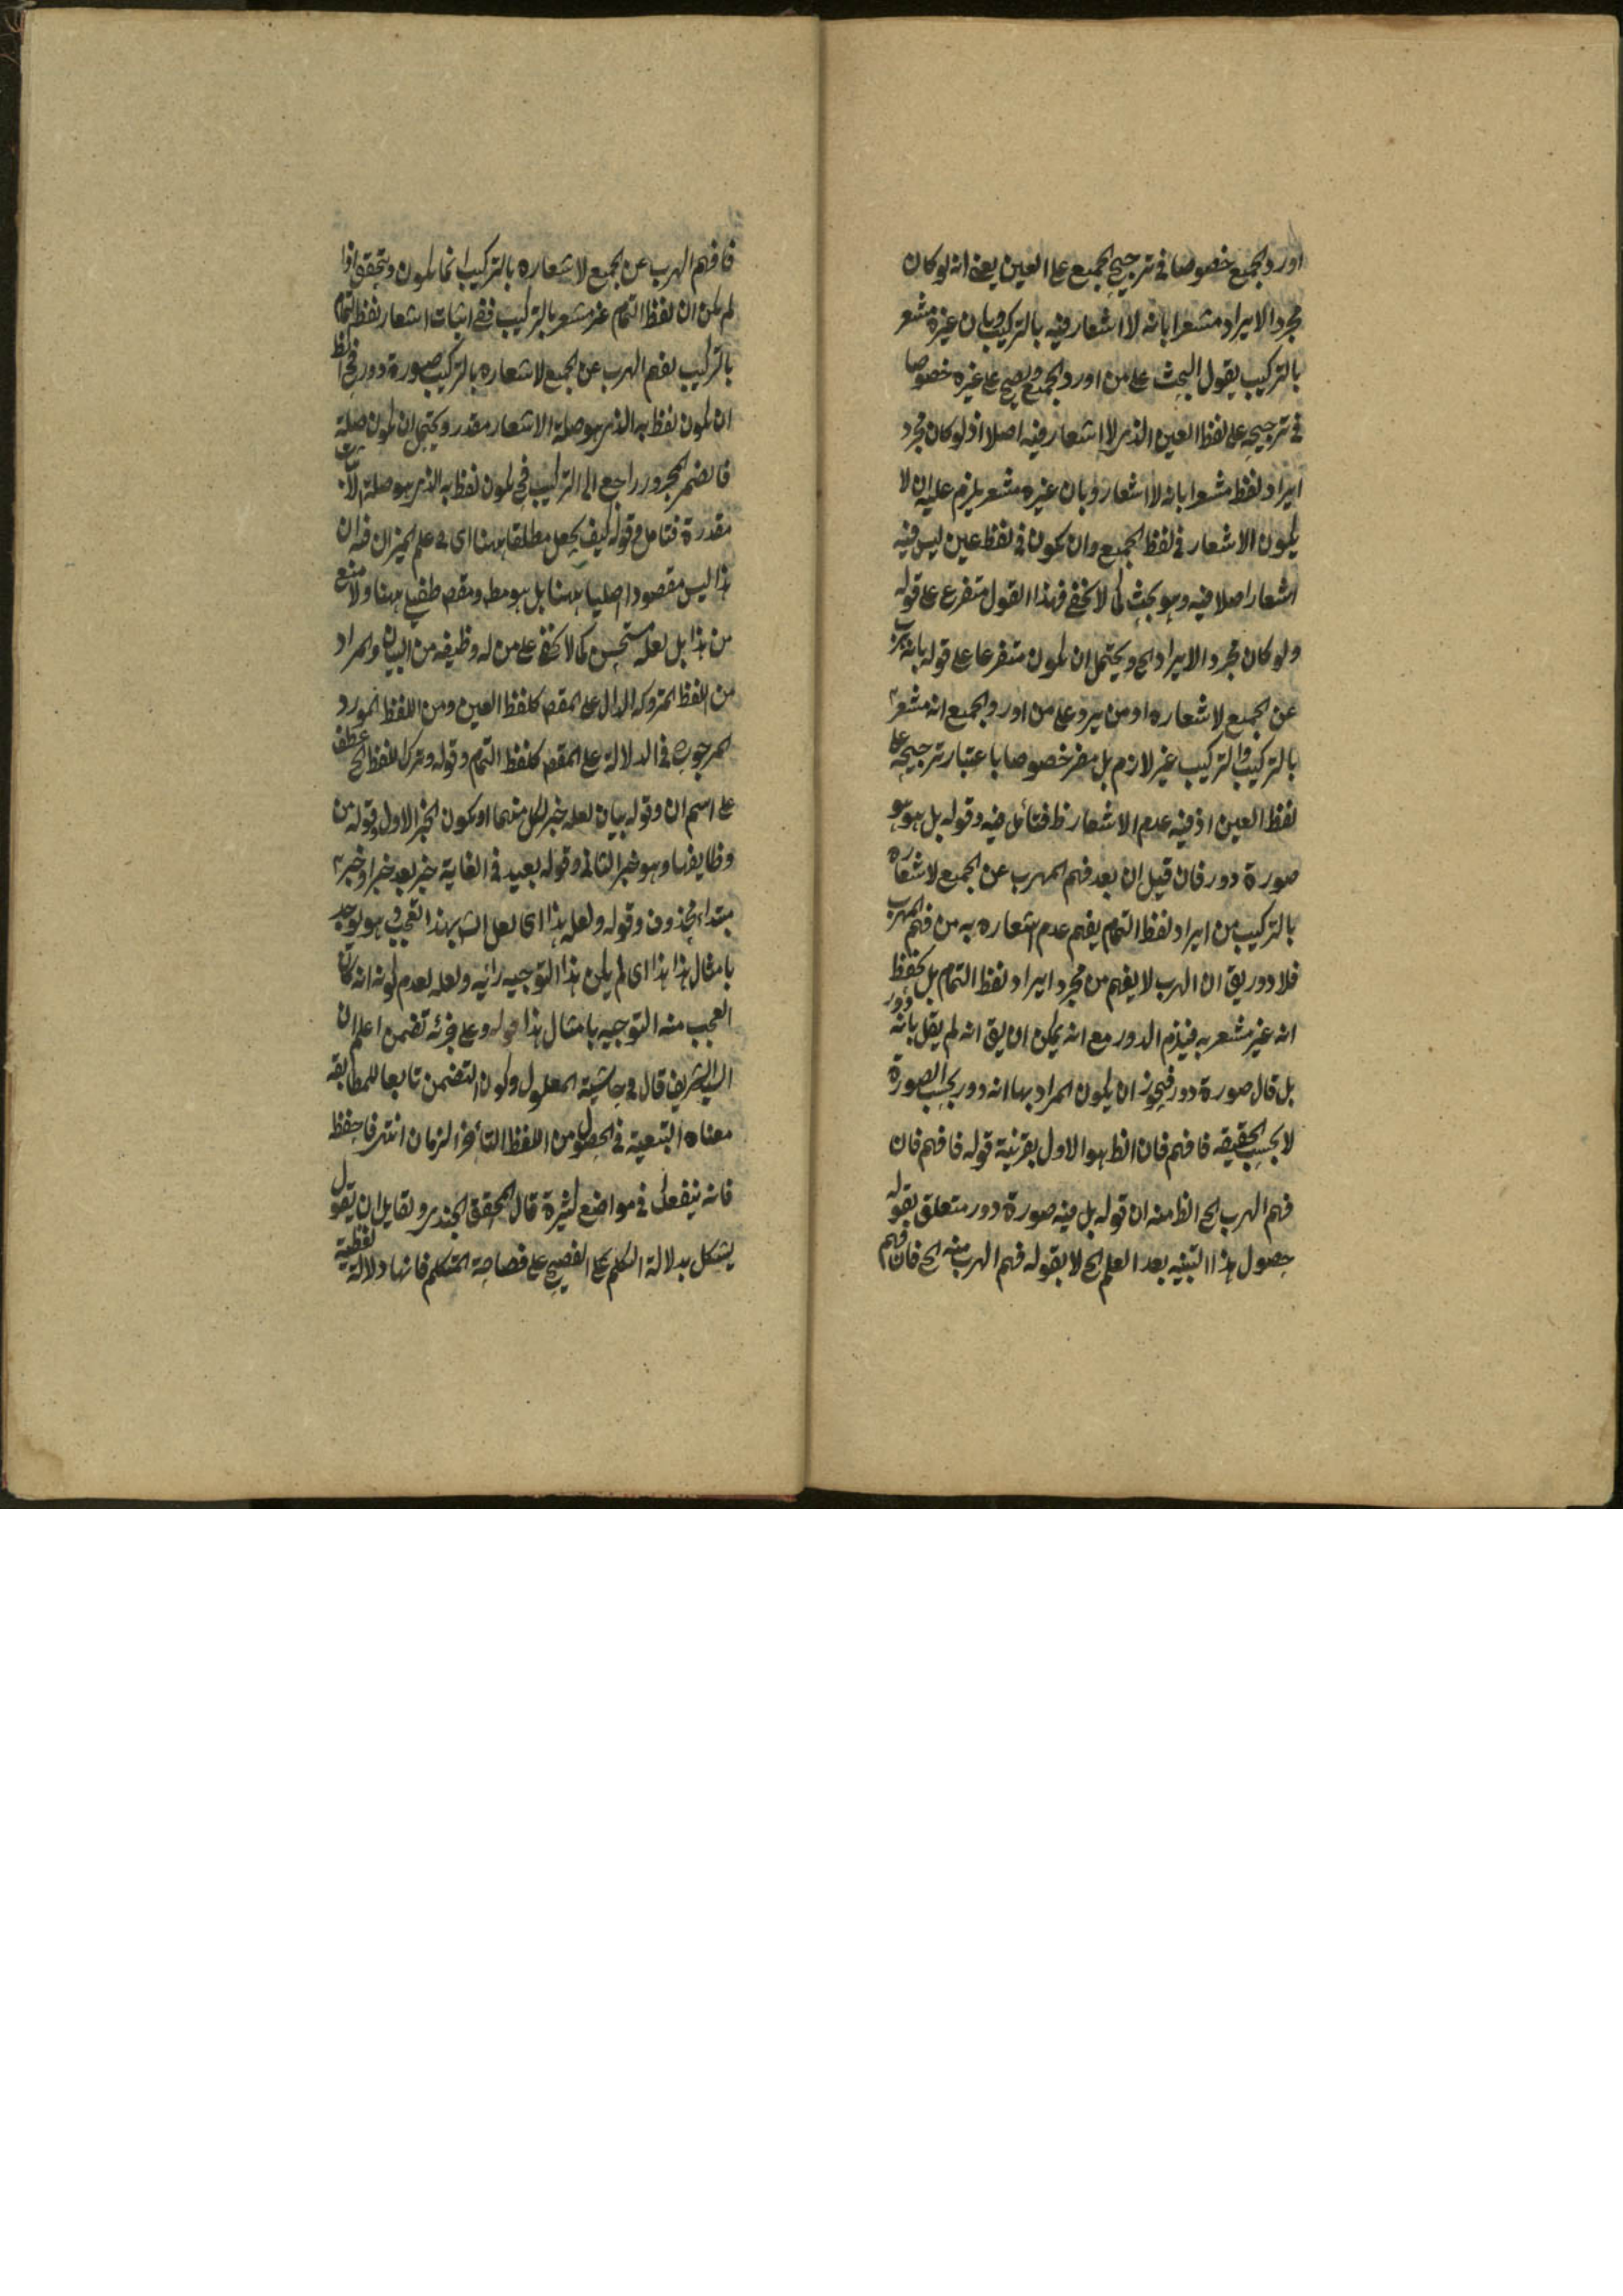 اورد الجميع خصوصا فى ترجيح الجميع على العين يعنى انه لو كان
مجرد الايراد مشعرا بانه لا اشعار فيه بالتركيب وبان غيره مشعر
بالتركيب يقول البحث على من اورد الجميع ويصح على غيره خصوصا
فى ترجيحه على لفظ العين الذى لا اشعار فيه اصلا اذ لو كان مجرد
ايراد لفظ مشعرا بانه لا اشعار وبان غيره مشعر يلزم عليه ان لا
يكون الاشعار فى لفظ الجميع وان يكون فى لفظ عين ليس فيه
اشعار اصلا فيه وهو بحث كما لا يخفى فهذا القول متفرع على قوله
ولو كان مجرد الايراد الخ ويحتمل ان يكون متفرعا على قوله بانه يهرب
عن الجميع لاشعاره او من يرد على من اورد الجميع انه مشعر
بالتركيب والتركيب غير لازم بل مضر خصوصا باعتبار ترجيحه على
لفظ العين اذ فيه عدم الاشعار ظ فتأمل فيه وقوله بل هو
صورة دور فان قيل ان بعد فهم المهرب عن الجميع لاشعاره
بالتركيب من ايراد لفظ التمام يفهم عدم اشعاره به من فهم المهرب
فلا دور يق ان الهرب لا يفهم من مجرد ايراد لفظ التمام بل بحفظ
انه غير مشعر به فيلزم الدور مع انه يمكن ان يق انه لم يقل بانه دور
بل قال صورة دور فيجوز ان يكون المراد بها انه دور بحسب الصورة
لا بحسب الحقيقه فافهم فان الظ هو الاول بقرينة قوله فافهم فان
فهم الهرب الخ الظ منه ان قوله بل فيه صورة دور متعلق بقوله
حصول هذا التنبيه بعد العلم الخ لا بقوله فهم الهرب منه الخ فان فهم
فافهم الهرب عن الجميع لاشعاره بالتركيب انما يكون ويتحقق اذا
لم يكن ان لفظ التمام غير مشعر بالتركيب ففى اثبات اشعار لفظ التمام
بالتركيب بفهم الهرب عن الجميع لاشعاره بالتركيب صورة دور فح الظ
ان يكون لفظ به الذى هو صلة الاشعار مقدر ويحتمل ان يكون صلة
فالضمير المجرور راجع الى التركيب فح يكون لفظ به الذى هو صلة الاثبات
مقدرة فتامل وقوله كيف يجعل مطلقا ههنا اى فى علم الميزان فان
هذا ليس مقصودا اصليا ههنا بل هو مط ومقص طفيلى ههنا ولا منع
من هذا بل لعله مستحسن كما لا يخفى على من له وظيفه من البيان والمراد
من اللفظ المتروكه الدال على المقص كلفظ العين ومن اللفظ المورد
المرجوح فى الدلالة على المقص كلفظ التمام وقوله وترك اللفظ الخ عطف
على اسم ان وقوله بيان لعله خبر لكل منهما او يكون الخبر الاول وقوله من
وظايفها وهو خبر الثانى وقوله بعيد فى الغاية خبر بعد خبر او خبر
مبتداء محذوف وقوله ولعله هذا اى لعل الش بهذا تعجب وهو يوجد
بامثال هذا هذا اى لم يكن هذا التوجيه رأيه ولعله لعدم كونه انه كان
العجب منه التوجيه بامثال هذا قوله وعلى جزئه تضمن اعلم ان
السيد الشريف قال فى حاشية المطول وكون التضمن تابعا للمطابقه
معناه التبعية فى الحصول من اللفظ التأخر الزمان انتهى فاحفظ
فانه ينفعك فى مواضع كثيرة قال المحقق الجندى ولقايل ان يقول
يشكل بدلالة الكلم على الفصيح على فصاحة المتكلم فانها دلالة لفظية